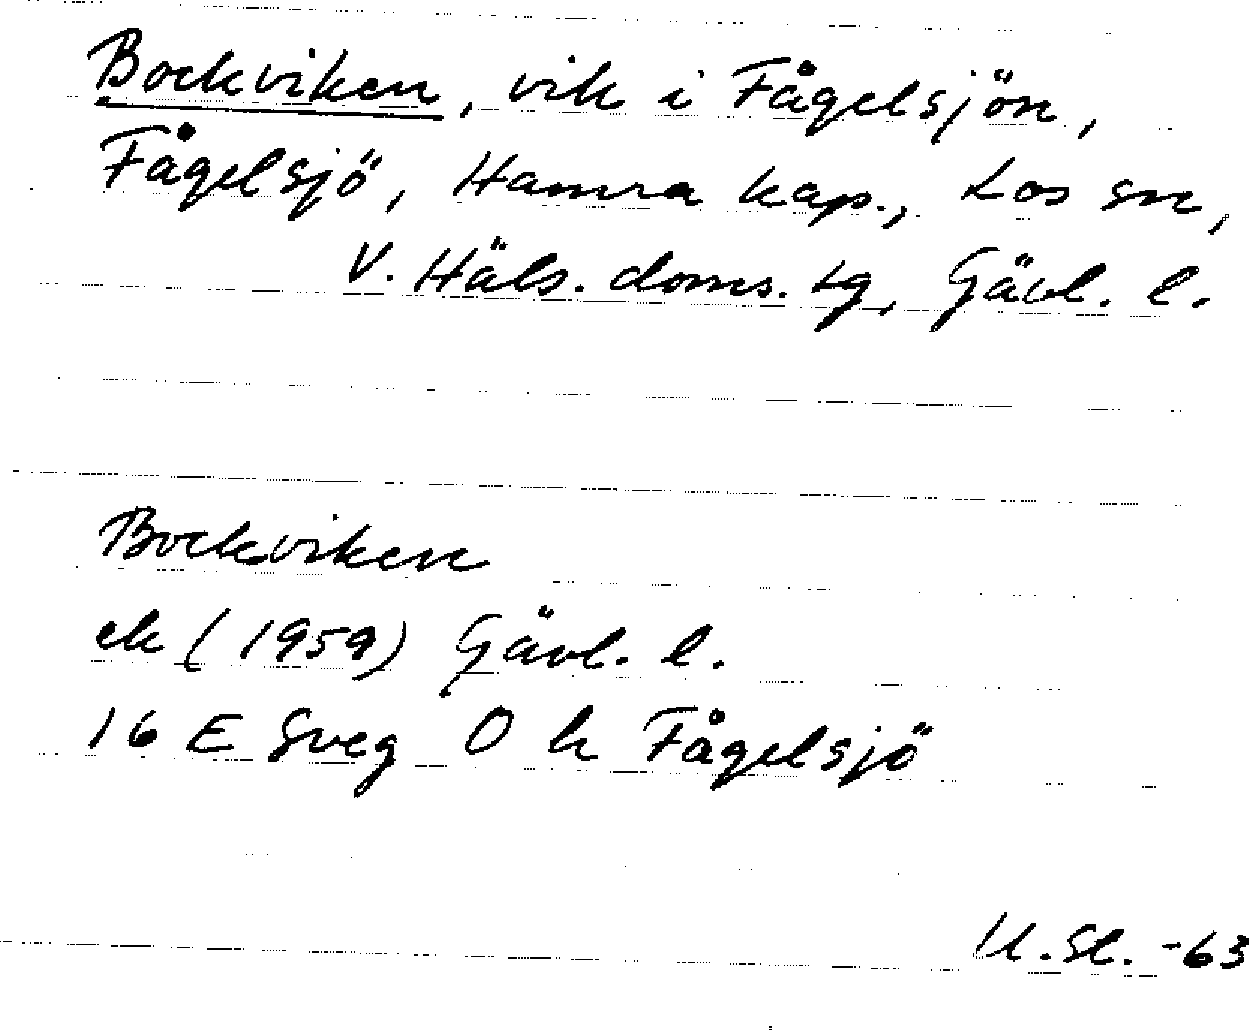 Bockviken, vik i Fågelsjön,
Fågelsjö, Hamra kap., Los sn,
V. Häls. doms. tg, Gävl. l.
Bockviken
ek (1959) Gävl. l.
16 E Sveg O h Fågelsjö
U. Sl. -63